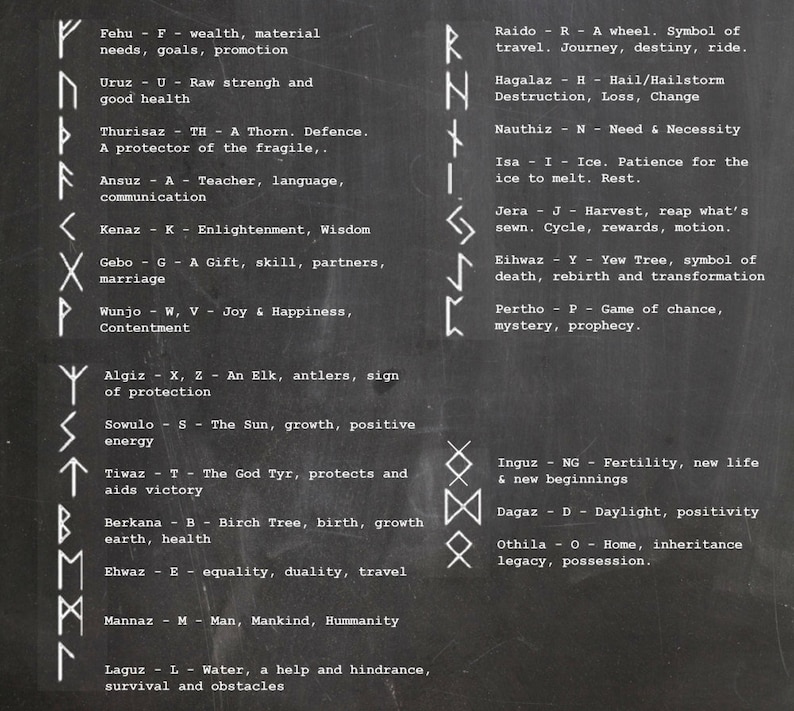 ᚠ Fehu - F - wealth, material
needs, goals, promotion
ᚢ Uruz - U - Raw strengh and
good health
ᚦ Thurisaz - TH - A Thorn. Defence.
A protector of the fragile,.
ᚨ Ansuz - A - Teacher, language,
communication
ᚲ Kenaz - K - Enlightenment, Wisdom
ᚷ Gebo - G - A Gift, skill, partners,
marriage
ᚹ Wunjo - W, V - Joy & Happiness,
Contentment
ᚱ Raido - R - A wheel. Symbol of
travel. Journey, destiny, ride.
ᚺ Hagalaz - H - Hail/Hailstorm
Destruction, Loss, Change
ᚾ Nauthiz - N - Need & Necessity
ᛁ Isa - I - Ice. Patience for the
ice to melt. Rest.
ᛃ Jera - J - Harvest, reap what's
sewn. Cycle, rewards, motion.
ᛇ Eihwaz - Y - Yew Tree, symbol of
death, rebirth and transformation
ᛈ Pertho - P - Game of chance,
mystery, prophecy.
ᛉ Algiz - X, Z - An Elk, antlers, sign
of protection
ᛊ Sowulo - S - The Sun, growth, positive
energy
ᛏ Tiwaz - T - The God Tyr, protects and
aids victory
ᛒ Berkana - B - Birch Tree, birth, growth
earth, health
ᛖ Ehwaz - E - equality, duality, travel
ᛗ Mannaz - M - Man, Mankind, Hummanity
ᛚ Laguz - L - Water, a help and hindrance,
survival and obstacles
ᛝ Inguz - NG - Fertility, new life
& new beginnings
ᛞ Dagaz - D - Daylight, positivity
ᛟ Othila - O - Home, inheritance
legacy, possession.